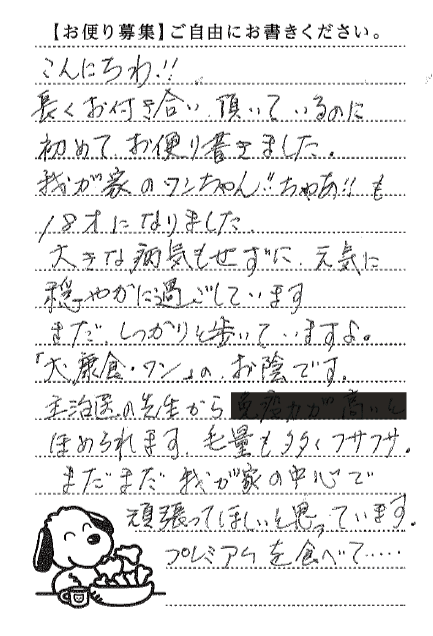 【お便り募集】ご自由にお書きください。
こんにちわ!!
長くお付き合い頂いているのに
初めてお便り書きました。
我が家のワンちゃん!!ちゃあ!!も
18才になりました。
大きな病気もせずに、元気に
穏やかに過ごしています
まだ、しっかりと歩いていますよ。
「大康食・ワン」の、お陰です。
主治医の先生から
ほめられます。毛量も多くフサフサ。
まだまだ我が家の中心で
頑張ってほしいと思っています。
プレミアムを食べて……